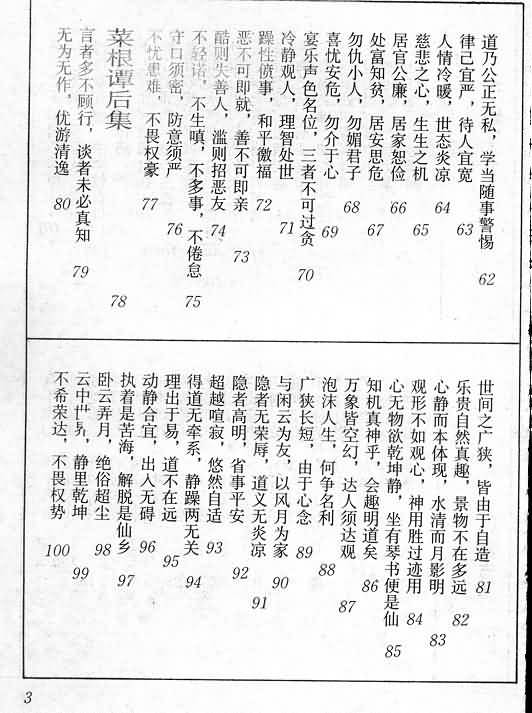 道乃公正无私，学当随事警惕 62
律己宜严，待人宜宽 63
人情冷暖，世态炎凉 64
慈悲之心，生生之机 65
居官公廉，居家恕俭 66
处富知贫，居安思危 67
勿仇小人，勿媚君子 68
喜忧安危，勿介于心 69
宴乐声色名位，三者不可过贪 70
冷静观人，理智处世 71
躁性偾事，和平徼福 72
恶不可即就，善不可即亲 73
酷则失善人，滥则招恶友 74
不轻诺，不生嗔，不多事，不倦怠 75
守口须密，防意须严 76
不忧患难，不畏权豪 77
菜根谭后集 78
言者多不顾行，谈者未必真知 79
无为无作，优游清逸 80
世间之广狭，皆由于自造 81
乐贵自然真趣，景物不在多远 82
心静而本体现，水清而月影明 83
观形不如观心，神用胜过迹用 84
心无物欲乾坤静，坐有琴书便是仙 85
知机真神乎，会趣明道矣 86
万象皆空幻，达人须达观 87
泡沫人生，何争名利 88
广狭长短，由于心念 89
与闲云为友，以风月为家 90
隐者无荣辱，道义无炎凉 91
隐者高明，省事平安 92
超越喧寂，悠然自适 93
得道无牵系，静躁两无关 94
理出于易，道不在远 95
动静合宜，出入无碍 96
执着是苦海，解脱是仙乡 97
卧云弄月，绝俗超尘 98
云中世界，静里乾坤 99
不希荣达，不畏权势 100
3